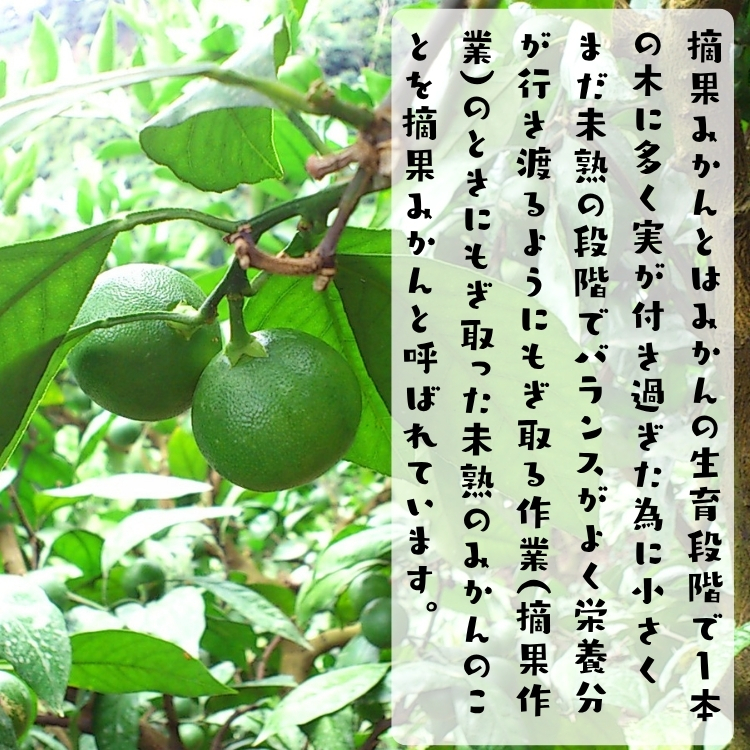 摘果みかんとはみかんの生育段階で1本
の木に多く実が付き過ぎた為に小さく
まだ未熟の段階でバランスがよく栄養分
が行き渡るようにもぎ取る作業(摘果作
業)のときにもぎ取った未熟のみかんのこ
とを摘果みかんと呼ばれています。